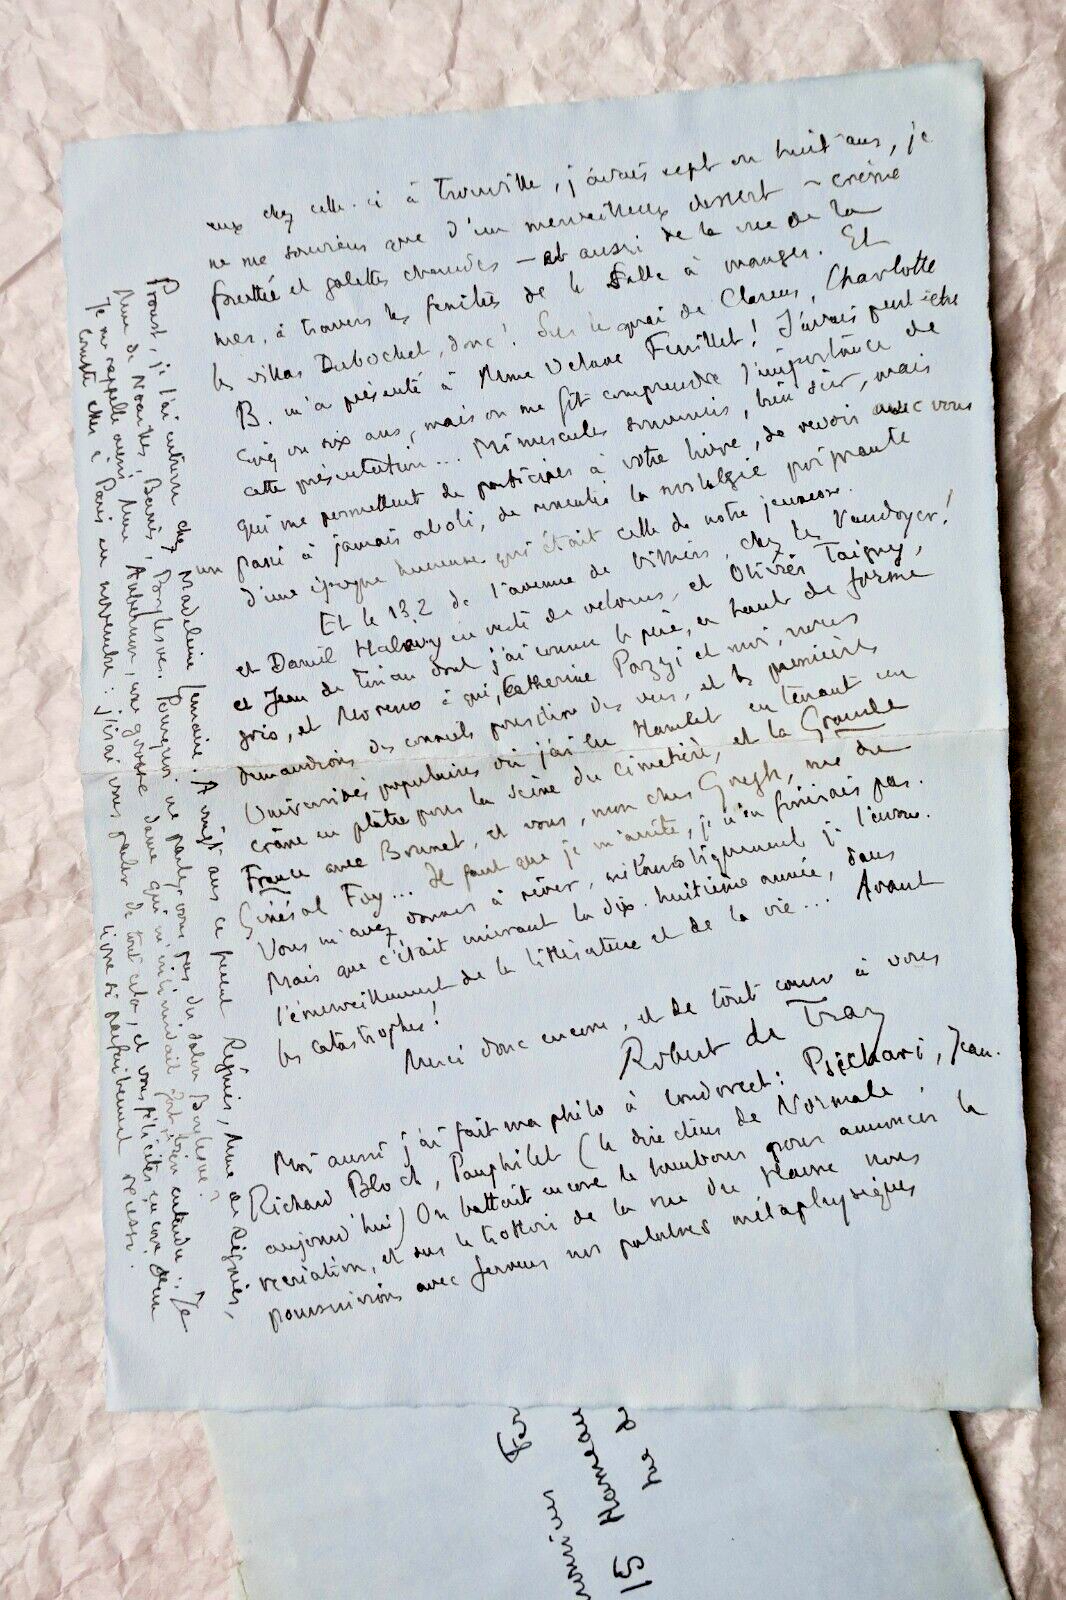 eux chez celle-ci à Trouville, j'avais sept ou huit ans, je
ne me souviens que d'un merveilleux dessert – crème
fouettée et galettes chaudes – et aussi de la vue de la
mer, à travers les fenêtres de la salle à manger. Et
les villas Dubochet, donc! Sur le quai de Clarens, Charlotte
B. m'a présenté à Mme Octave Feuillet! J'avais peut-être
cinq ou six ans, mais on me fit comprendre l'importance de
cette présentation... Minuscules souvenirs, bien sûr, mais
qui me permettent de participer à votre livre, de revoir avec vous
un passé à jamais aboli, de ressentir la nostalgie poignante
d'une époque heureuse qui était celle de notre jeunesse.
Et le 132 de l'avenue de Villiers, chez les Vaudoyer!
et Daniel Halévy en veste de velours, et Olivier Taigny,
et Jean de Tinan dont j'ai connu le père, en haut de forme
gris, et Moreno à qui, Catherine Pozzi et moi, nous
demandions des conseils pour dire des vers, et les premières
Universités populaires où j'ai lu Hamlet en tenant un
crâne en plâtre pour la scène du cimetière, et la Grande
France avec Brunet, et vous, mon cher Gregh, rue du
Général Foy... Il faut que je m'arrête, je n'en finirais pas.
Vous m'avez donné à rêver, mélancoliquement je l'avoue.
Mais que c'était enivrant la dix-huitième année, dans
l'émerveillement de la littérature et de la vie... Avant
les catastrophes!
Merci donc encore, et de tout cœur à vous
Robert de Traz
Moi aussi j'ai fait ma philo à Condorcet: Psichari, Jean-
Richard Bloch, Pauphilet (le directeur de Normale
aujourd'hui) On battait encore le tambour pour annoncer la
récréation, et sur le trottoir de la rue du Havre nous
poursuivions avec ferveur nos palabres métaphysiques
Proust, je l'ai entrevu chez Madeleine Lemaire. A vingt ans ce furent Régnier, Mme de Régnier,
Mme de Noailles, Barrès, Boylesve. Pourquoi ne parlez-vous pas du salon Boylesve?
Je me rappelle aussi Mme Aubernon, une grosse dame qui m'intimidait fort bien entendu. Je
compte aller à Paris en novembre: j'irai vous parler de tout cela, et vous féliciter encore d'un
livre si parfaitement réussi.
Monsieur Fer
15 Hameau
rue de